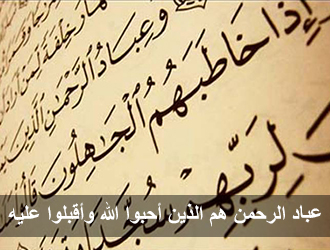 خلفة لمن أراد
وعباد الرحمن الذين
إذا خاطبهم الجاهلون قالوا
لربهم سجدا
عباد الرحمن هم الذين أحبوا الله وأقبلوا عليه